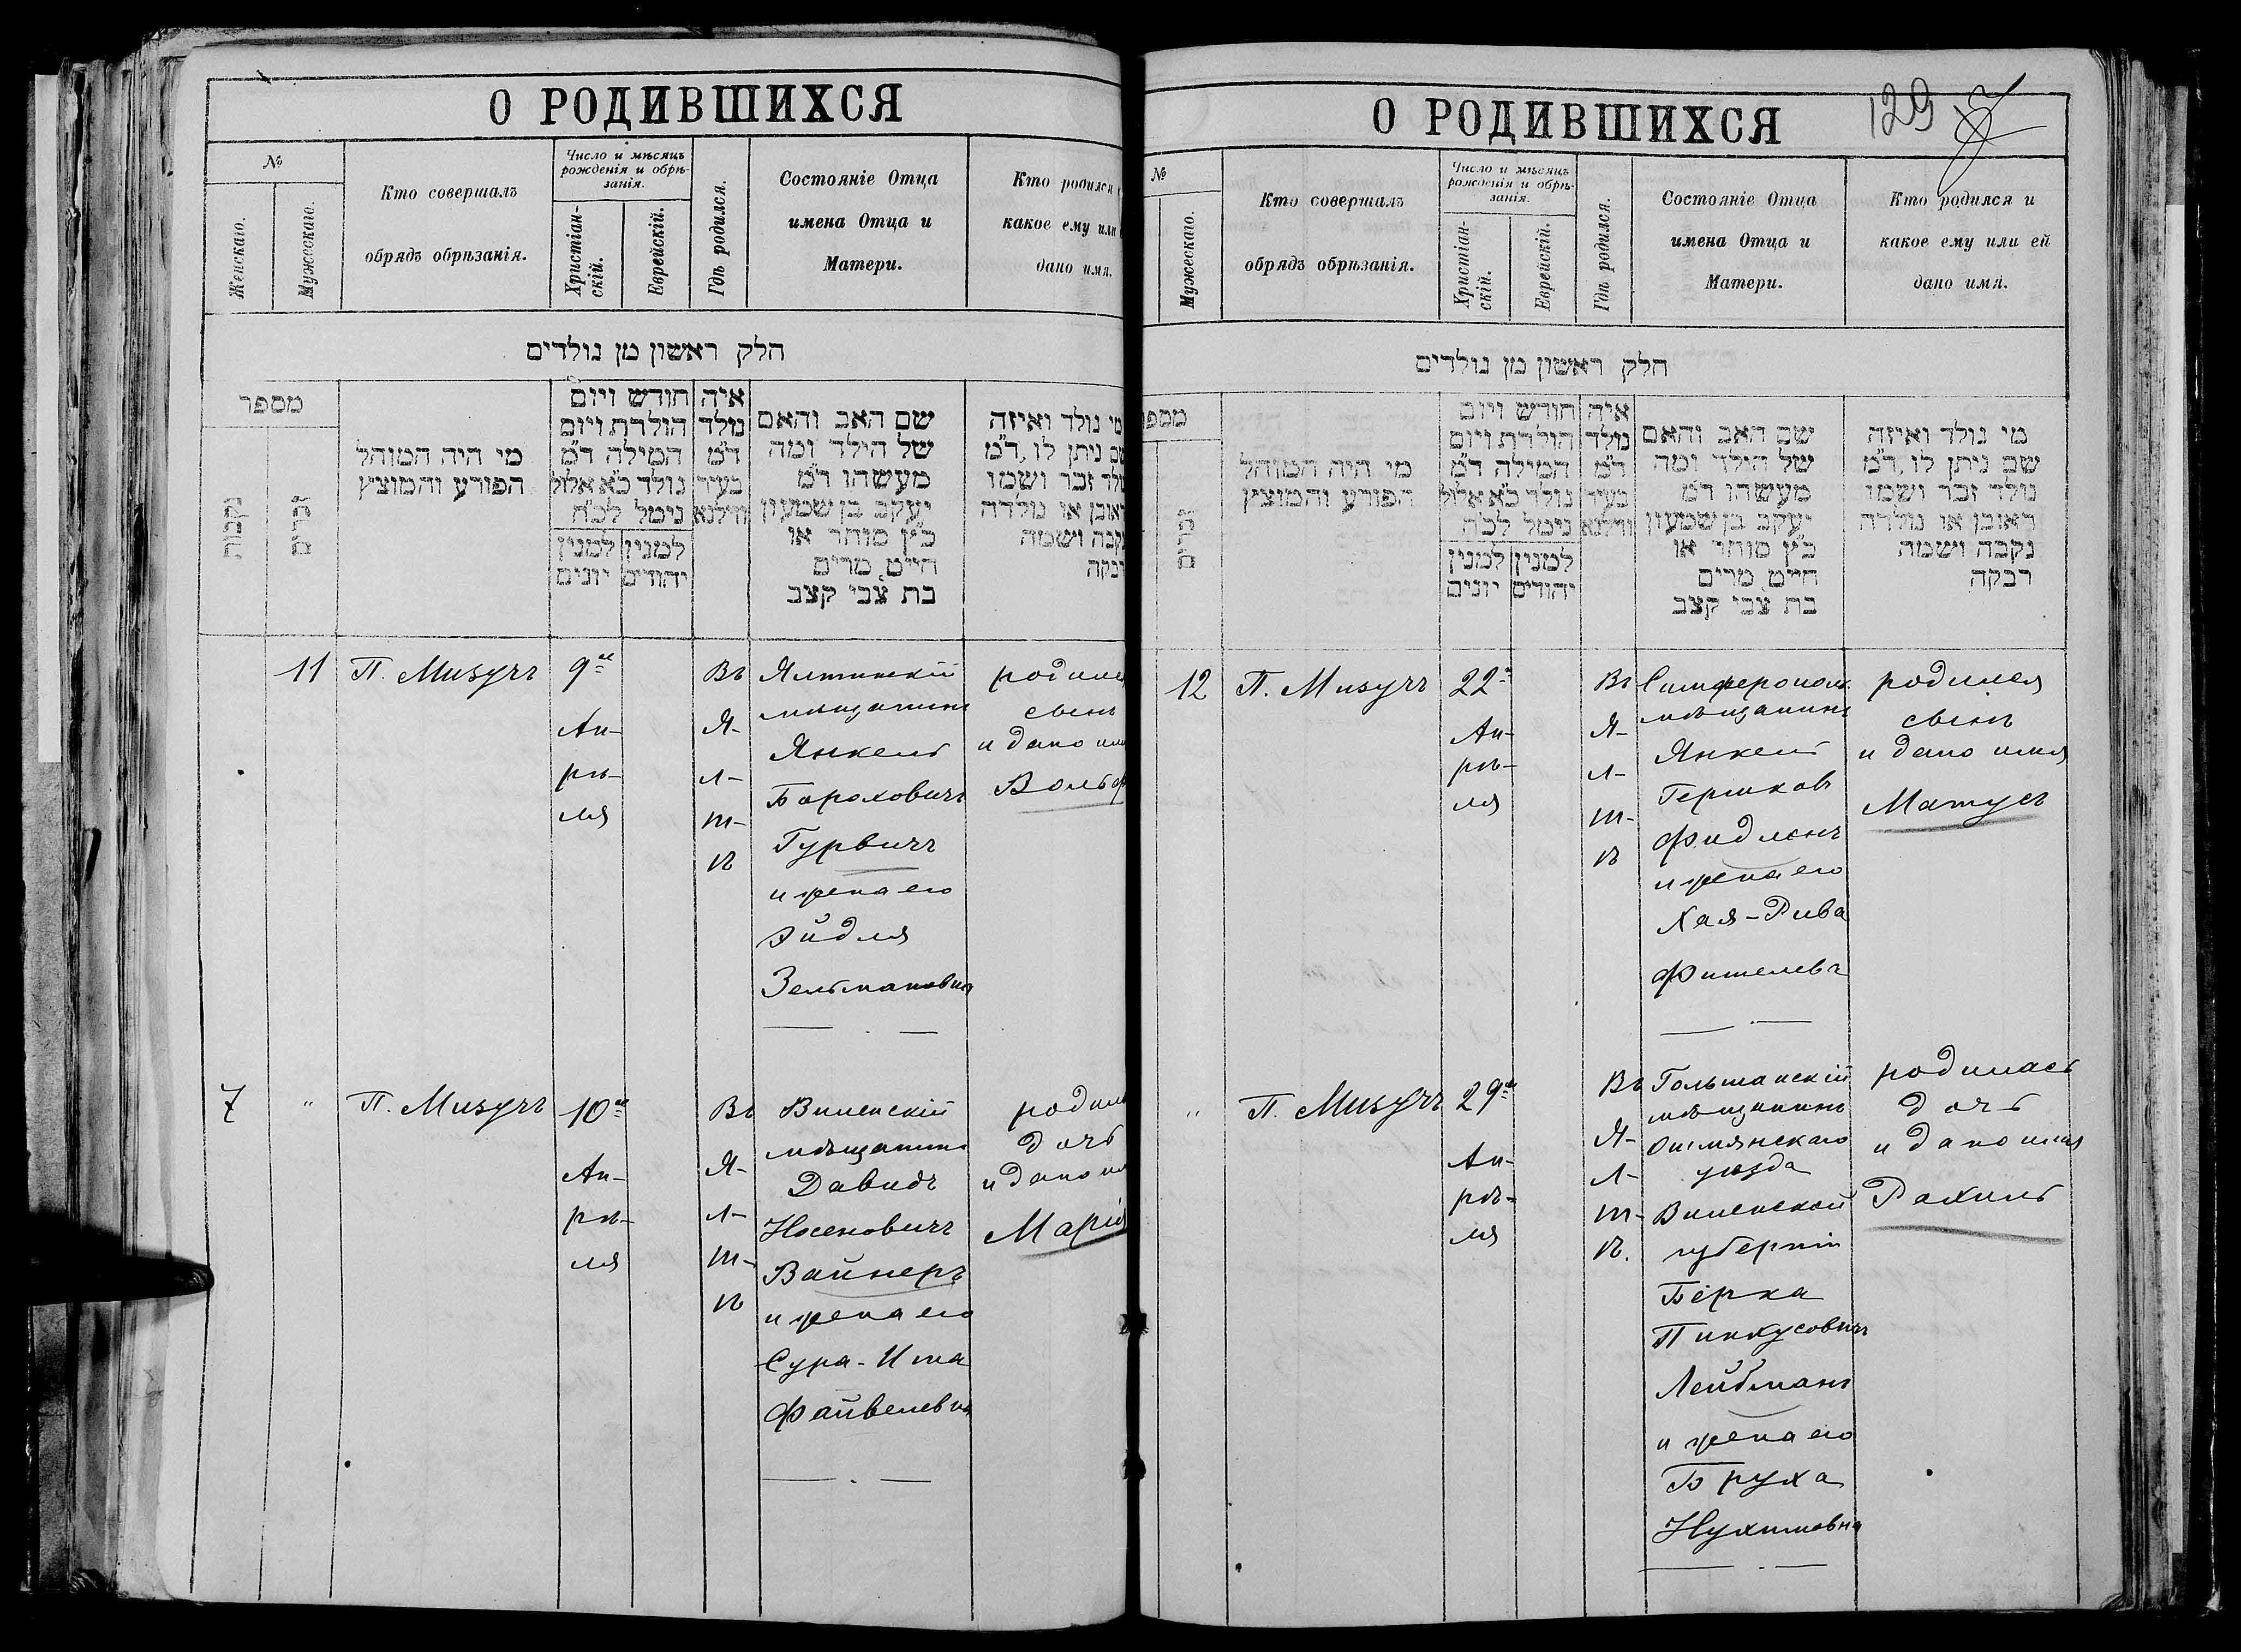 О РОДИВШИХСЯ
№
Женскаго.
Мужескаго.
Кто совершалъ
обрядъ обрѣзанія.
Число и мѣсяцъ
рожденія и обрѣ-
занія.
Христіан-
скій.
Еврейскій.
Гдѣ родился.
Состояніе Отца
имена Отца и
Матери.
Кто родился
какое ему или
дано имя.
חלק ראשון מן נולדים
מספר
נקבות
זכרים
מי היה המוהל
הפורע והמוצץ
חודש ויום
הולדת ויום
המילה ד"מ
נולד כ"א אלול
נימל לכ"ח
למנין
יהודים
למנין
יונים
איה
נולד
ד"מ
בעיר
ווילנא
שם האב והאם
של הילד ומה
מעשהו ד"מ
יעקב בן שמעון
כ"ץ סוחר או
חייט מרים
בת צבי קצב
מי נולד ואיזה
שם ניתן לו, ד"מ
נולד זכר ושמו
ראובן או נולדה
נקבה ושמה
11
П. Мизучъ
9го
Ап-
рѣ-
ля
Въ
Я-
л-
т-
ѣ
Ялтинскій
мѣщанинъ
Янкель
Бороховичъ
Гурвичъ
и жена его
Эйдля
Зельмановна
родился
сынъ
и дано имя
Вольф
7
"
П. Мизучъ
10го
Ап-
рѣ-
ля
Въ
Я-
л-
т-
ѣ
Виленскій
мѣщанинъ
Давидъ
Носеновичъ
Вайнеръ
и жена его
Сура-Ита
Файвелевна
родил
дочь
и дано
Марія
О РОДИВШИХСЯ
129
№
Мужескаго.
Кто совершалъ
обрядъ обрѣзанія.
Число и мѣсяцъ
рожденія и обрѣ-
занія.
Христіан-
скій.
Еврейскій.
Гдѣ родился.
Состояніе Отца
имена Отца и
Матери.
Кто родился и
какое ему или ей
дано имя.
חלק ראשון מן נולדים
מספ
זכרים
מי היה המוהל
הפורע והמוצץ
חודש ויום
הולדת ויום
המילה ד"מ
נולד כ"א אלול
נימל לכ"ח
למנין
יהודים
למנין
יונים
איה
נולד
ד"מ
בעיר
ווילנא
שם האב והאם
של הילד ומה
מעשהו ד"מ
יעקב בן שמעון
כ"ץ סוחר או
חייט מרים
בת צבי קצב
מי נולד ואיזה
שם ניתן לו, ד"מ
נולד זכר ושמו
ראובן או נולדה
נקבה ושמה
רבקה
12
П. Мизучъ
22го
Ап-
рѣ-
ля
Въ
Я-
л-
т-
ѣ
Симферопол.
мѣщанинъ
Янкель
Гершковъ
Фидлонъ
и жена его
Хая-Рива
Фишелевъ
родился
сынъ
и дано имя
Матусъ
"
П. Мизучъ
29го
Ап-
рѣ-
ля
Въ
Я-
л-
т-
ѣ.
Гольшанскій
мѣщанинъ
Ошмянскаго
уѣзда
Виленской
губерніи
Берка
Пинкусовичъ
Лейбманъ
и жена его
Бруха
Нухимовна
родилась
дочь
и дано имя
Рахиль